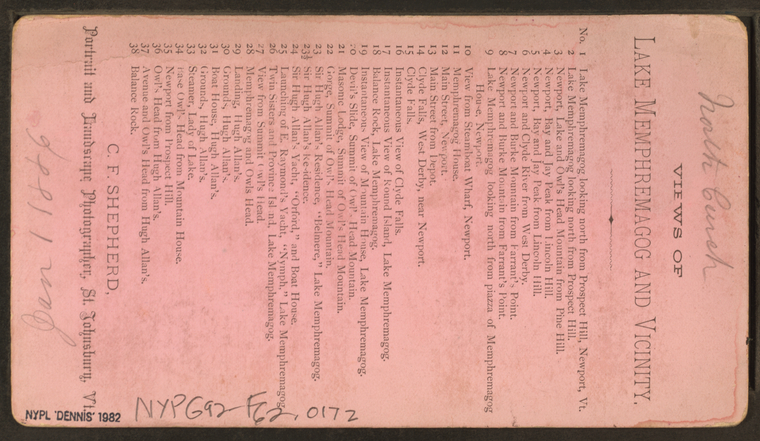 VIEWS OF
LAKE MEMPHREMAGOG AND VICINITY.
No. 1 Lake Memphremagog looking north from Prospect Hill, Newport, Vt.
2 Lake Memphremagog looking north from Prospect Hill.
3 Newport, Lake and Owl's Head Mountain from Pine Hill.
4 Newport, Bay and Jay Peak from Lincoln Hill.
5 Newport, Bay and Jay Peak from Lincoln Hill.
6 Newport and Clyde River from West Derby.
7 Newport and Burke Mountain from Farrant's Point.
8 Newport and Burke Mountain from Farrant's Point.
9 Lake Memphremagog looking north from piazza of Memphremagog
House, Newport.
10 View from Steamboat Wharf, Newport.
11 Memphremagog House.
12 Main Street, Newport.
13 Main Street from Depot.
14 Clyde Falls, West Derby, near Newport.
15 Clyde Falls.
16 Instantaneous View of Clyde Falls.
17 Instantaneous View of Round Island, Lake Memphremagog.
18 Balance Rock, Lake Memphremagog.
19 Instantaneous View of Mountain House, Lake Memphremagog.
20 Devil's Slide, Summit of Owl's Head Mountain.
21 Masonic Lodge, Summit of Owl's Head Mountain.
22 Gorge, Summit of Owl's Head Mountain.
23 Sir Hugh Allan's Residence, "Belmere," Lake Memphremagog.
23½ Sir Hugh Allan's Residence.
24 Sir Hugh Allan's Yacht, "Orford," and Boat House.
25 Launching of E. Raymond's Yacht, "Nymph," Lake Memphremagog.
26 Twin Sisters and Province Island, Lake Memphremagog.
27 View from Summit Owl's Head.
28 Memphremagog and Owls Head.
29 Landing, Hugh Allan's.
30 Grounds, Hugh Allan's.
31 Boat House, Hugh Allan's.
32 Grounds, Hugh Allan's.
33 Steamer, Lady of Lake.
34 Base Owl's Head from Mountain House.
35 Newport from Prospect Hill.
36 Owl's Head from Hugh Allan's.
37 Avenue and Owl's Head from Hugh Allan's.
38 Balance Rock.
C. F. SHEPHERD,
Portrait and Landscape Photographer, St. Johnsbury, Vt.
NYPL 'DENNIS' 1982
NYPG92-F62.0172